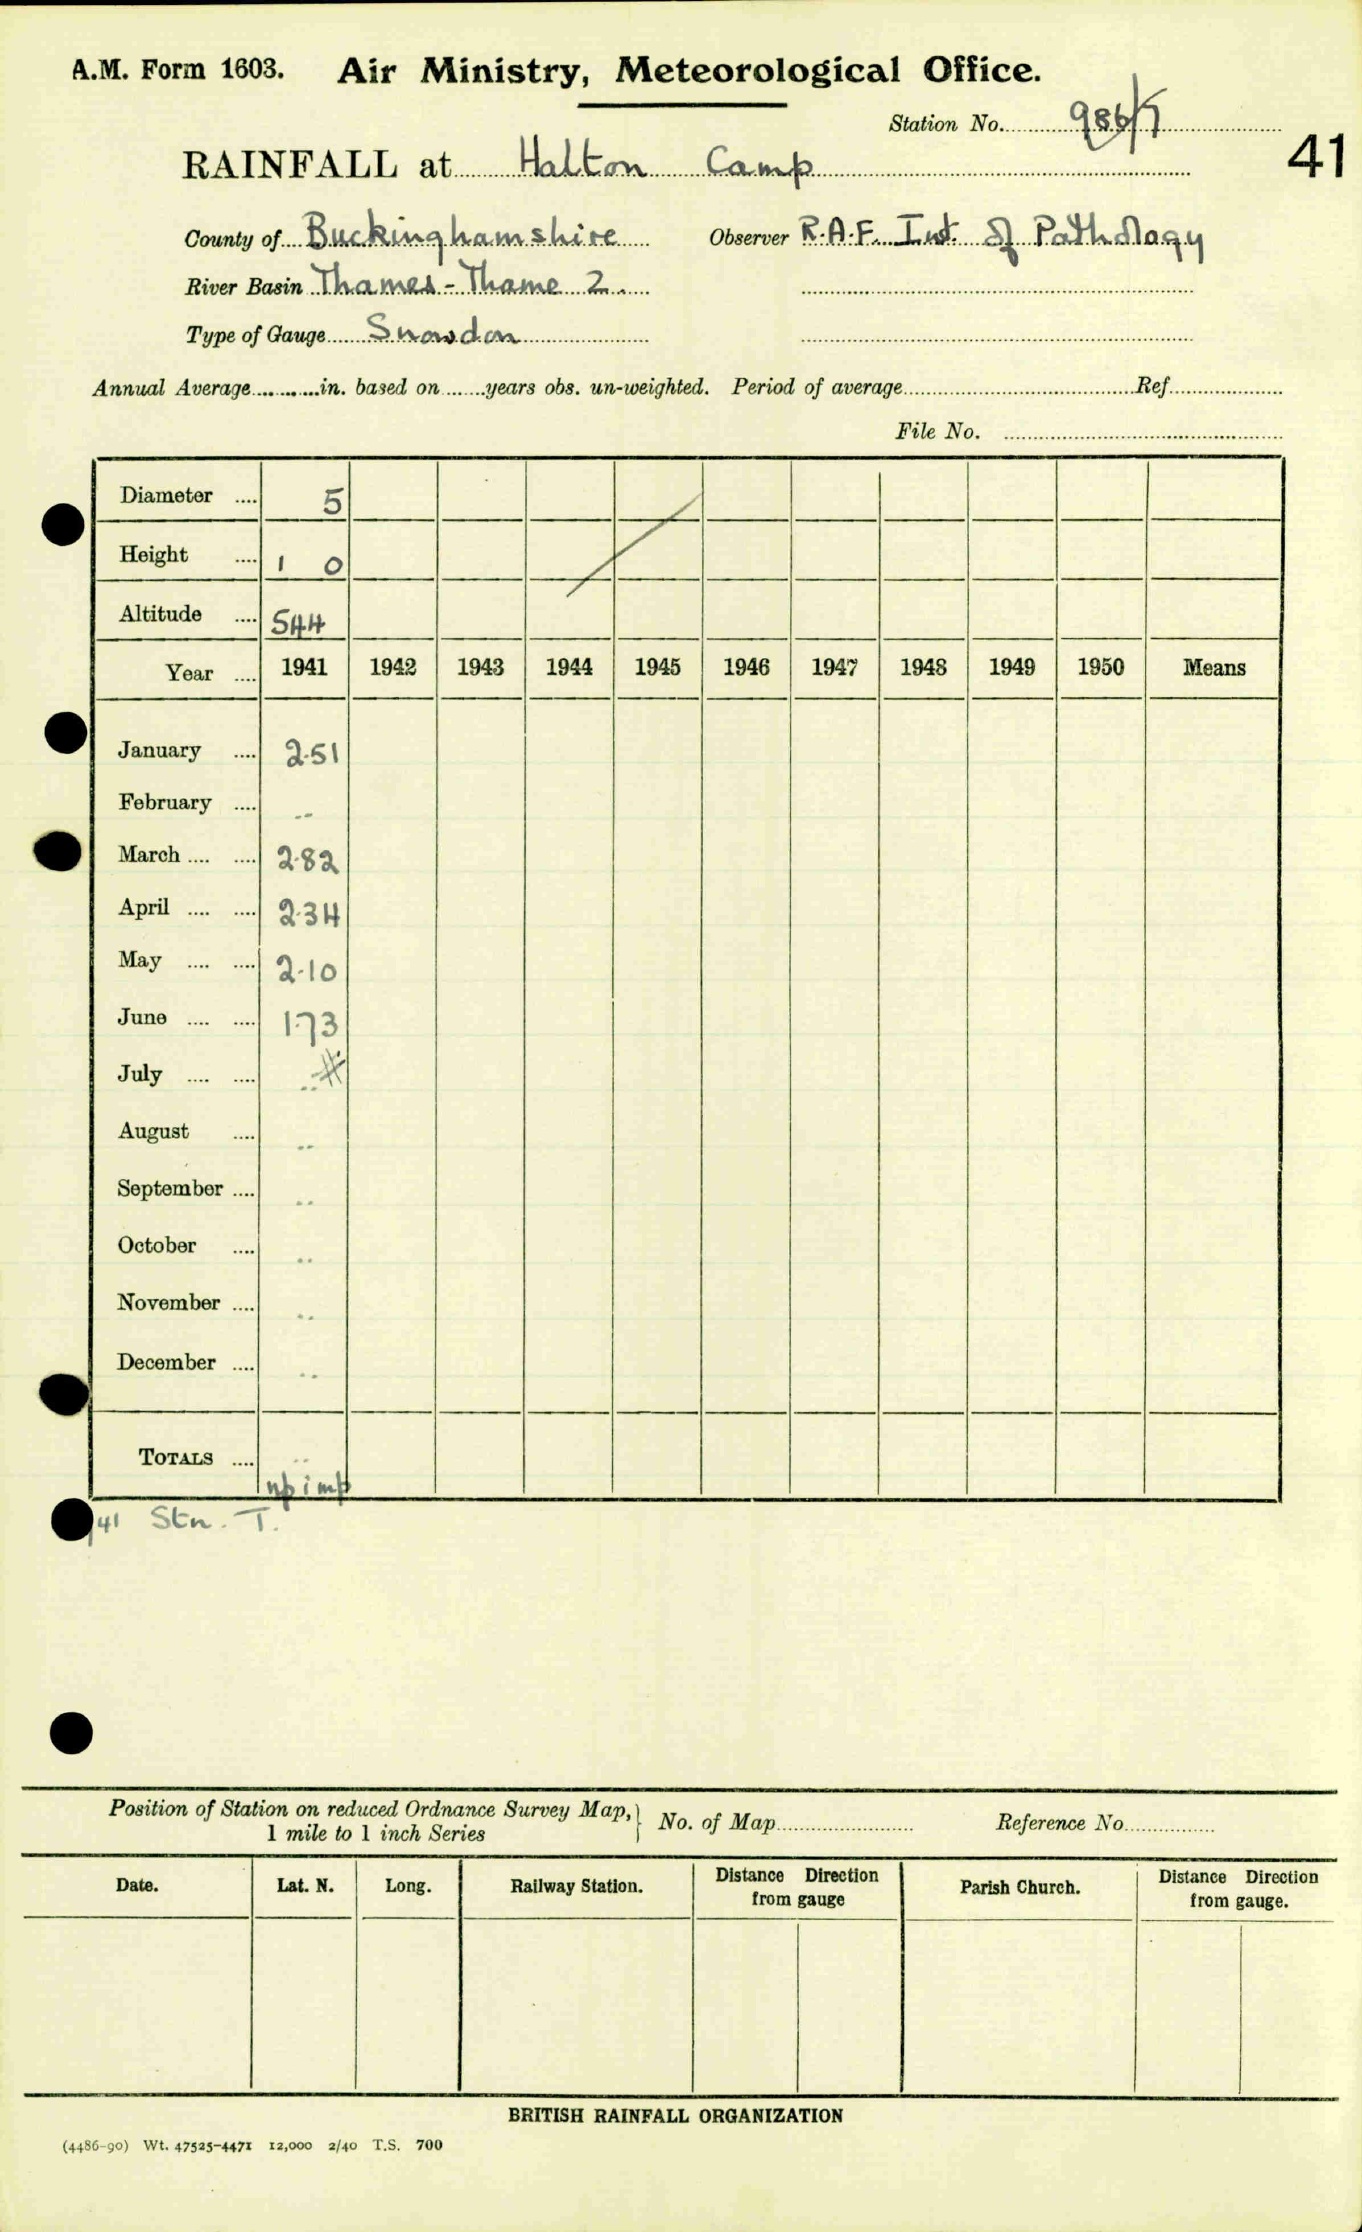 A.M. Form 1603. Air Ministry, Meteorological Office.
Station No. 986/7
41
RAINFALL at Halton Camp
County of Buckinghamshire Observer R.A.F. Inst. of Pathology
River Basin Thames - Thame 2.
Type of Gauge Snowdon
Annual Average in. based on years obs. un-weighted. Period of average Ref.
File No.
Diameter .... 5
Height .... 1 0
Altitude .... 544
Year .... 1941 1942 1943 1944 1945 1946 1947 1948 1949 1950 Means
January .... 2.51
February .... ..
March .... .... 2.82
April .... .... 2.34
May .... .... 2.10
June .... .... 1.73
July .... .... .. #
August .... ..
September .... ..
October .... ..
November .... ..
December .... ..
TOTALS .... ..
np imp
41 Stn. T.
Position of Station on reduced Ordnance Survey Map, } No. of Map Reference No.
1 mile to 1 inch Series
Date. Lat. N. Long. Railway Station. Distance Direction from gauge Parish Church. Distance Direction from gauge.
BRITISH RAINFALL ORGANIZATION
(4486-90) Wt. 47525-4471 12,000 2/40 T.S. 700